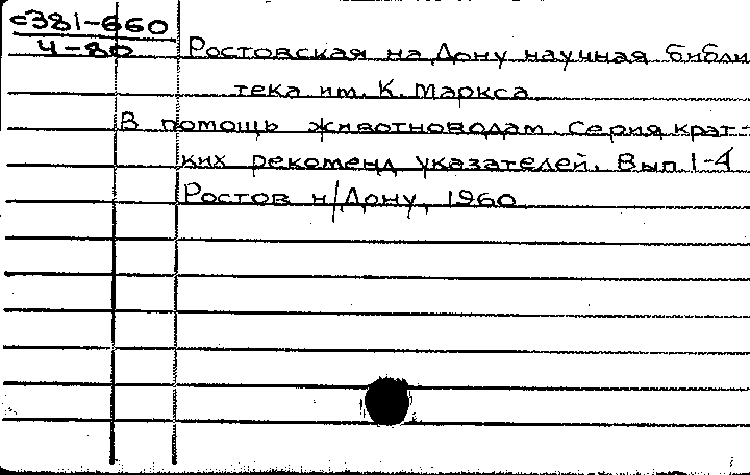 с381-660
4-80
Ростовская на Дону научная библи
тека им. К. Маркса
В помощь животноводам. Серия крат-
ких рекоменд указателей. Вып 1-4
Ростов н/Дону, 1960